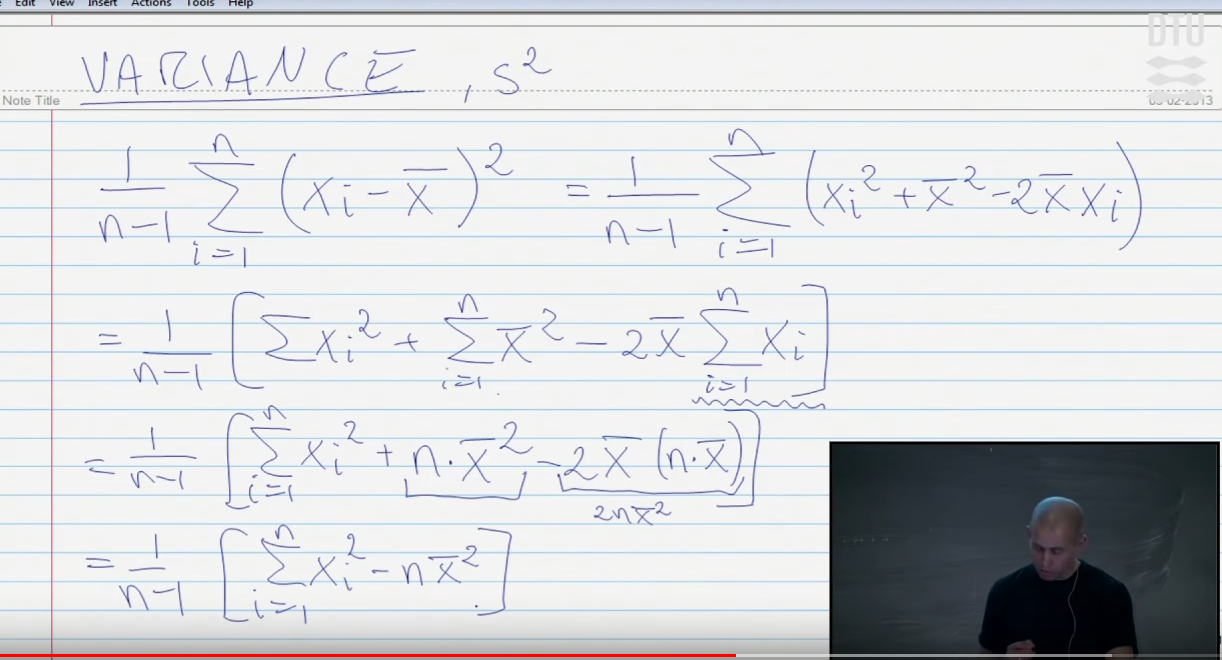 Edit View Insert Actions Tools Help
DTU
VARIANCE, s²
Note Title
1/(n-1) ∑_{i=1}^{n} (xi - x̄)² = 1/(n-1) ∑_{i=1}^{n} (xi² + x̄² - 2x̄xi)
= 1/(n-1) [∑xi² + ∑_{i=1}^{n} x̄² - 2x̄ ∑_{i=1}^{n} xi]
= 1/(n-1) [∑_{i=1}^{n} xi² + n·x̄² - 2x̄(n·x̄)]
2nx̄²
= 1/(n-1) [∑_{i=1}^{n} xi² - nx̄²]